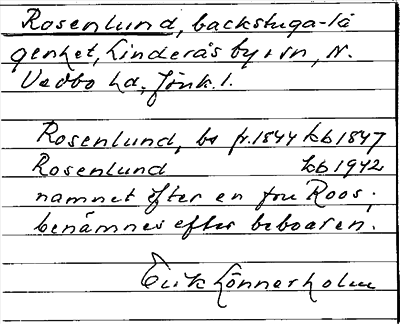 Rosenlund, backstuga-lä
genhet, Linderås by & sn, N.
Vedbo hd, Jönk. l.
Rosenlund, bs fr. 1844 kb 1847
Rosenlund kb 1942
namnet efter en fru Roos;
benämnes efter beboaren.
Erik Lönnerholm